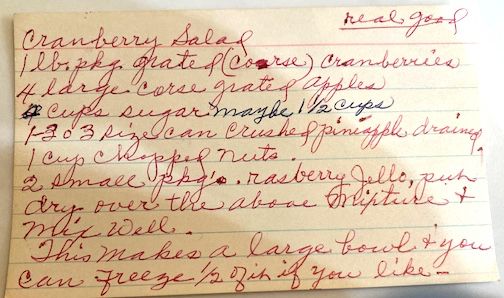 real good
Cranberry Salad
1 lb. pkg grated (coarse) cranberries
4 large corse grated apples
4 cups sugar maybe 1 1/2 cups
1-303 size can crushed pineapple drained
1 cup chopped nuts.
2 small pkg's. rasberry Jello, put
dry over the above mixture &
Mix Well.
This makes a large bowl & you
can freeze 1/2 of it if you like -